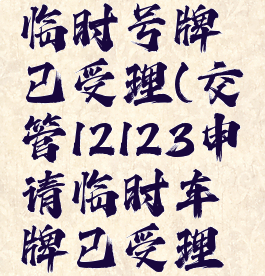 临时号牌
已受理(交
管12123申
请临时车
牌已受理